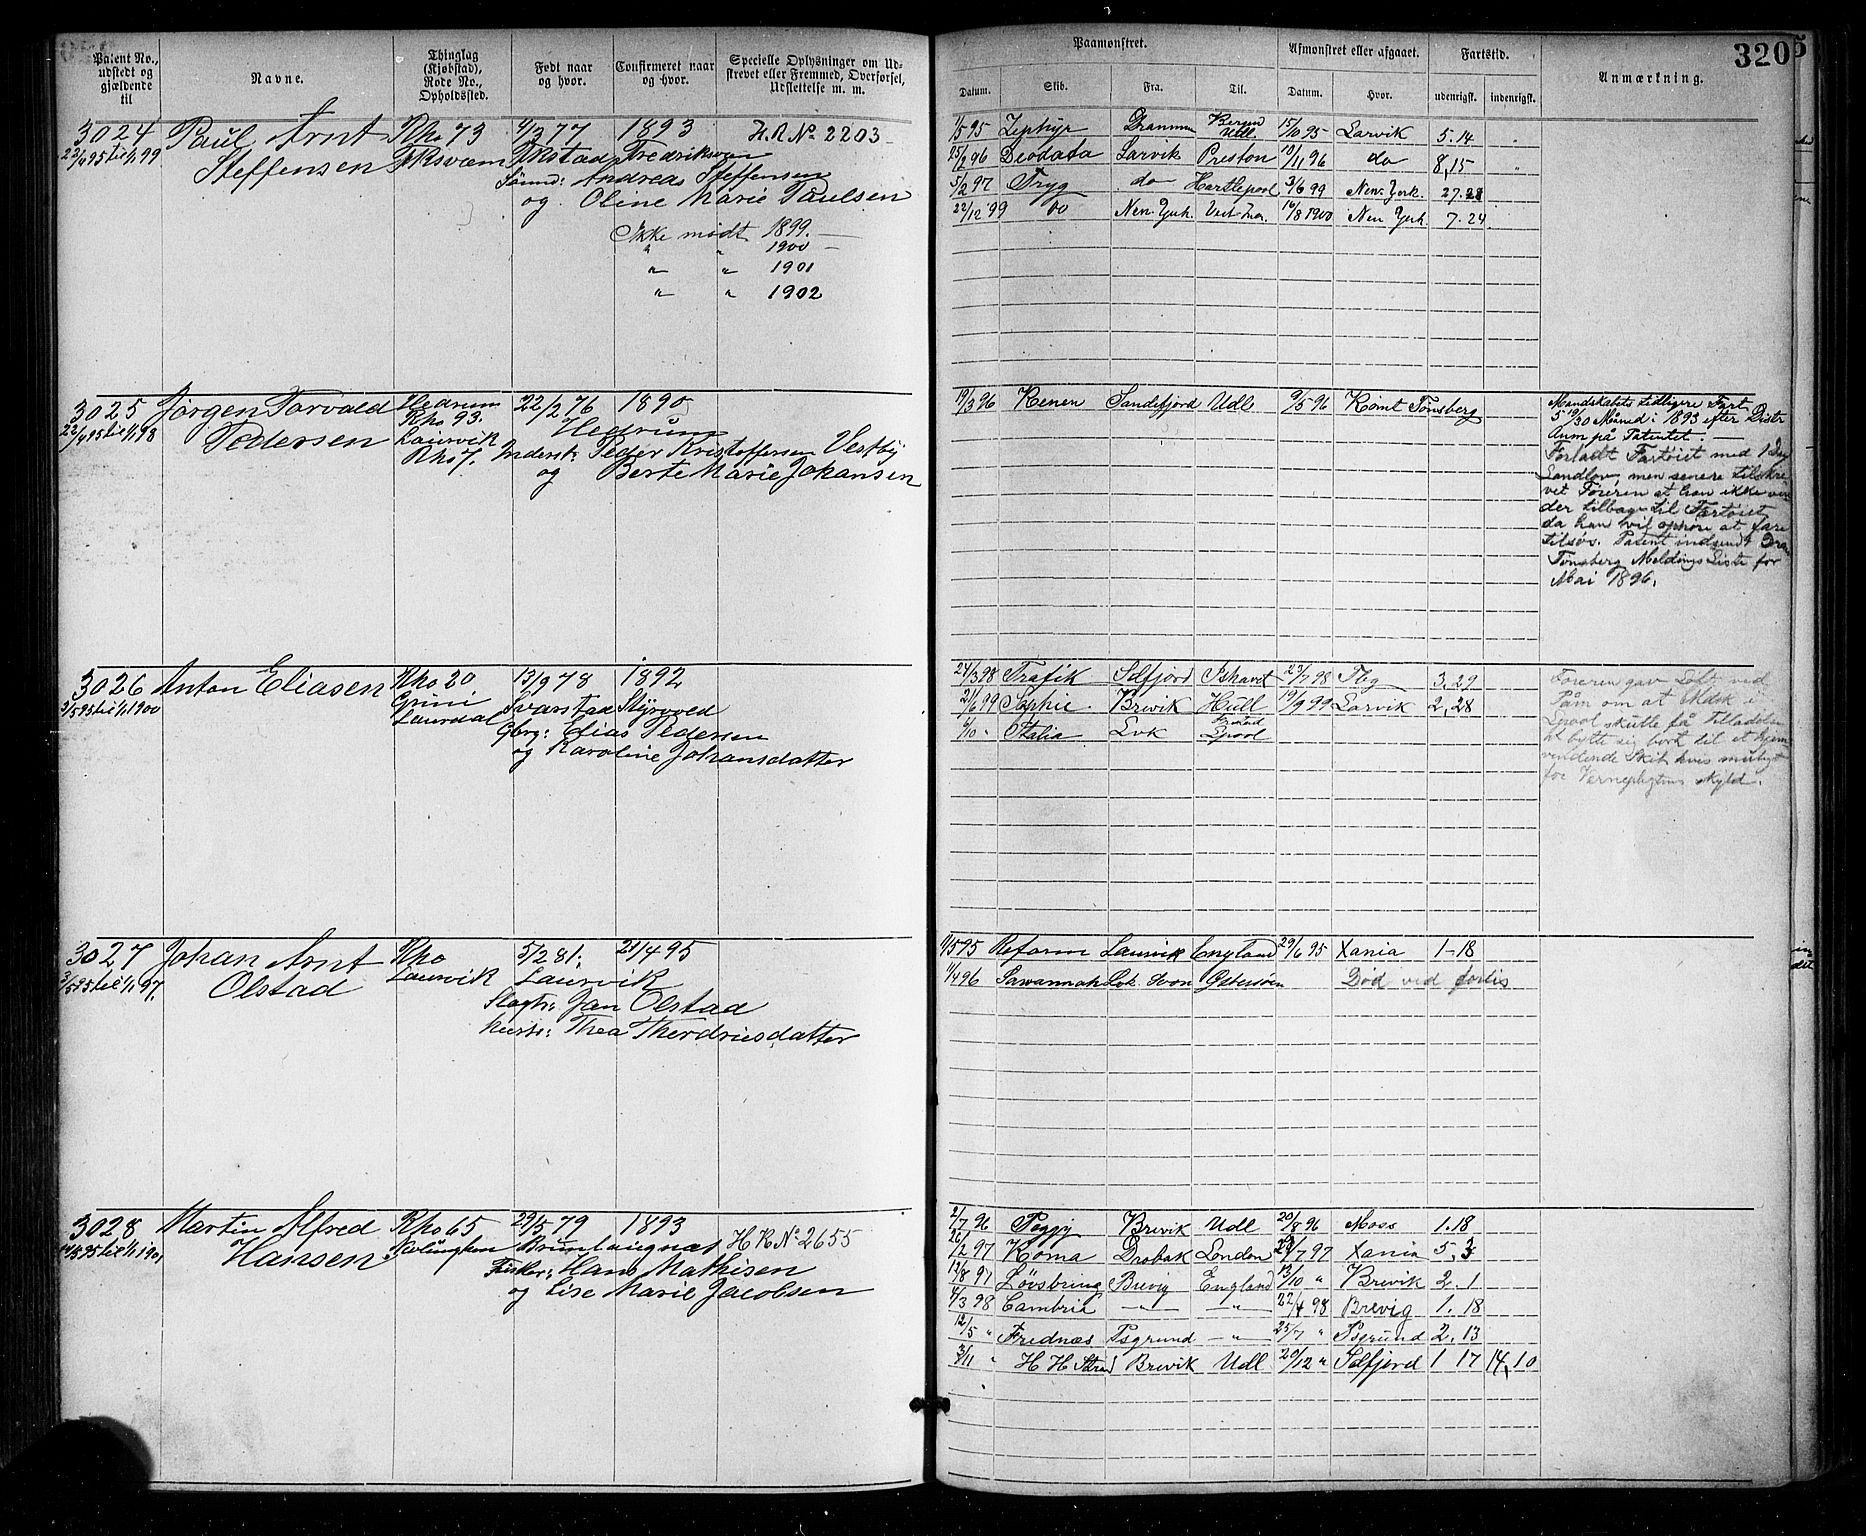 Patent No., udstedt og gjældende til
Navne.
Thinglag (Kjøbstad), Rode No., Opholdssted.
Født naar og hvor.
Confirmeret naar og hvor.
Specielle Oplysninger om Udstrevet eller Fremmed, Overførsel, Udslettelse m. m.
Paamønstret.
Afmønstret eller afgaaet.
Fartstid.
Anmærkning.
320
5
Datum. Skib. Fra. Til. Datum. Hvor. udenrigsk. indenrigsk.
3024 Paul Arnt Rho 73 4/3 77 1893 H.R No 2203
22/4 95 til 1/1 99 Steffensen FRsværn Tjølstad Fredriksværn
Sømd: Andreas Steffensen
og Oline Marie Paulsen
Ikke mødt 1899. —
" " 1900 —
" " 1901
" " 1902
1/5 95 Zephyr Drammen Bergen Udl. 15/10 95 Larvik 5.14 "
25/2 96 Deodata Larvik Preston 10/11 96 do 8,15 "
5/2 97 Tryg do Hartlepool 3/6 99 New-York 27.28
22/12 99 do New-York 16/8 1900 New York 7.24
3025 Jørgen Torvald Hedrum 22/2 76 1890
22/4 95 til 1/1 98 Pedersen Rho 93. Hedrum
Laurvik
Rho 7. Inderst: Peder Kristoffersen Vestby
og Berte Marie Johansen
19/3 96 Kenen Sandefjord Udl 9/5 96 Rømt Tønsberg
Mandskabets tidligere Fart
5 19/30 Måned i 1893 efter Distr
Anm på Patentet. —
Forladt Fartøiet med 1 Dag
Landlov, men senere tilskre
vet Føreren at han ikke ven
der tilbage til Fartøiet
da han vil ophøre at fare
tilsøs. Patent indsendt
Tønsberg Meldings Liste for
Mai 1896.
3026 Anton Eliasen Rho 20 13/9 78 1892
3/5 95 til 1/1 1900 Grini Svarstad Styrvold
Laurdal Gbrg: Elias Pedersen
og Karoline Johansdatter
24/3 98 Trafik Selfjord Ishavet 23/7 98 Tbg 3,29
2/6 99 Sophie Brevik Hull 19/9 99 Larvik 2,28
6/10 " Italia Lvk Lpool
Føreren gav Løfte ved
Påm om at Mdsk i
Lpool skulde få Tilladelse
at bytte sig bort til et hjem
vendende Skib hvis muligt
for Vernepligtens skyld.
3027 Johan Arnt Rho 5/2 81. 21/4 95
3/5 95 til 1/1 97. Olstad Laurvik Laurvik
Slagtr: Jan Olstad
hustr: Thea
11/5 95 Reform Laurvik England 29/6 95 Xania 1-18
11/4 96 Savannah Lvk Østersøen Død ved forlis
3028 Martin Alfred Rho 65 29/5 79 1893 H R No 2655
95 til 1/1 1901 Hansen Brunlaugnæs
Fisker: Hans Mathisen
og Lise Marie Jacobsen
2/7 96 Peggy Brevik Udl 20/8 96 Moss 1.18
26/2 97 Roma Drøbak London 23/7 97 Xania 5,3
12/8 97 Løvspring Brevig England 13/10 " Brevik 2.1
4/3 98 Cambria — " — — " — 22/4 98 Brevig 1.18
12/5 " Frednæs Psgrund — " — 25/7 " Psgrund 2,13
3/11 " H H Brevik Udl 20/12 " Selfjord 1 17 14,10